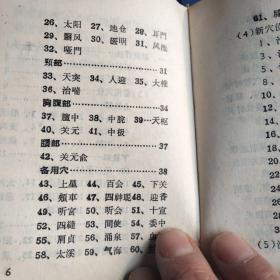 26、太阳 27、地仓 28、耳門
29、翳风 30、医明 31、风池
32、哑門
頸部 31
33、天突 34、人迎 35、大椎
36、治喘
胸腹部 34
37、膻中 38、中脘 39、天枢
40、关元 41、中极
腰部 37
42、关元俞
备用穴 38
43、上星 44、百会 45、下关
46、頰車 47、四神聪 48、迎香
49、听宫 50、听会 51、十宣
52、四縫 53、間使 54、委中
55、肩貞 56、涌泉 57、血
58、太溪 59、气海 60、
6
61、
(4)新穴位
1、
5、
(5)治